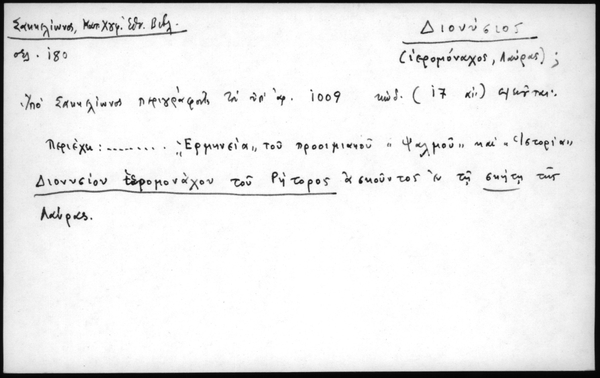 Σακκελίωνος, Κατ. Χγφ. Εθν. Βιβλ.
σελ. 180
Διονύσιος
(ἱερομόναχος, Λαύρας) ;
Ὑπό Σακκελίωνος περιγράφοντος τόν ὑπ' ἀρ. 1009 κώδ. (17 αἰ)
Περιέχει : ......... "Ερμηνεία" τοῦ προοιμιακοῦ "Ψαλμοῦ" καί "Ἱστορία"
Διονυσίου ἱερομονάχου τοῦ Ρήτορος ἀσκοῦντος ἐν τῇ σκήτῃ τῆς
Λαύρας.